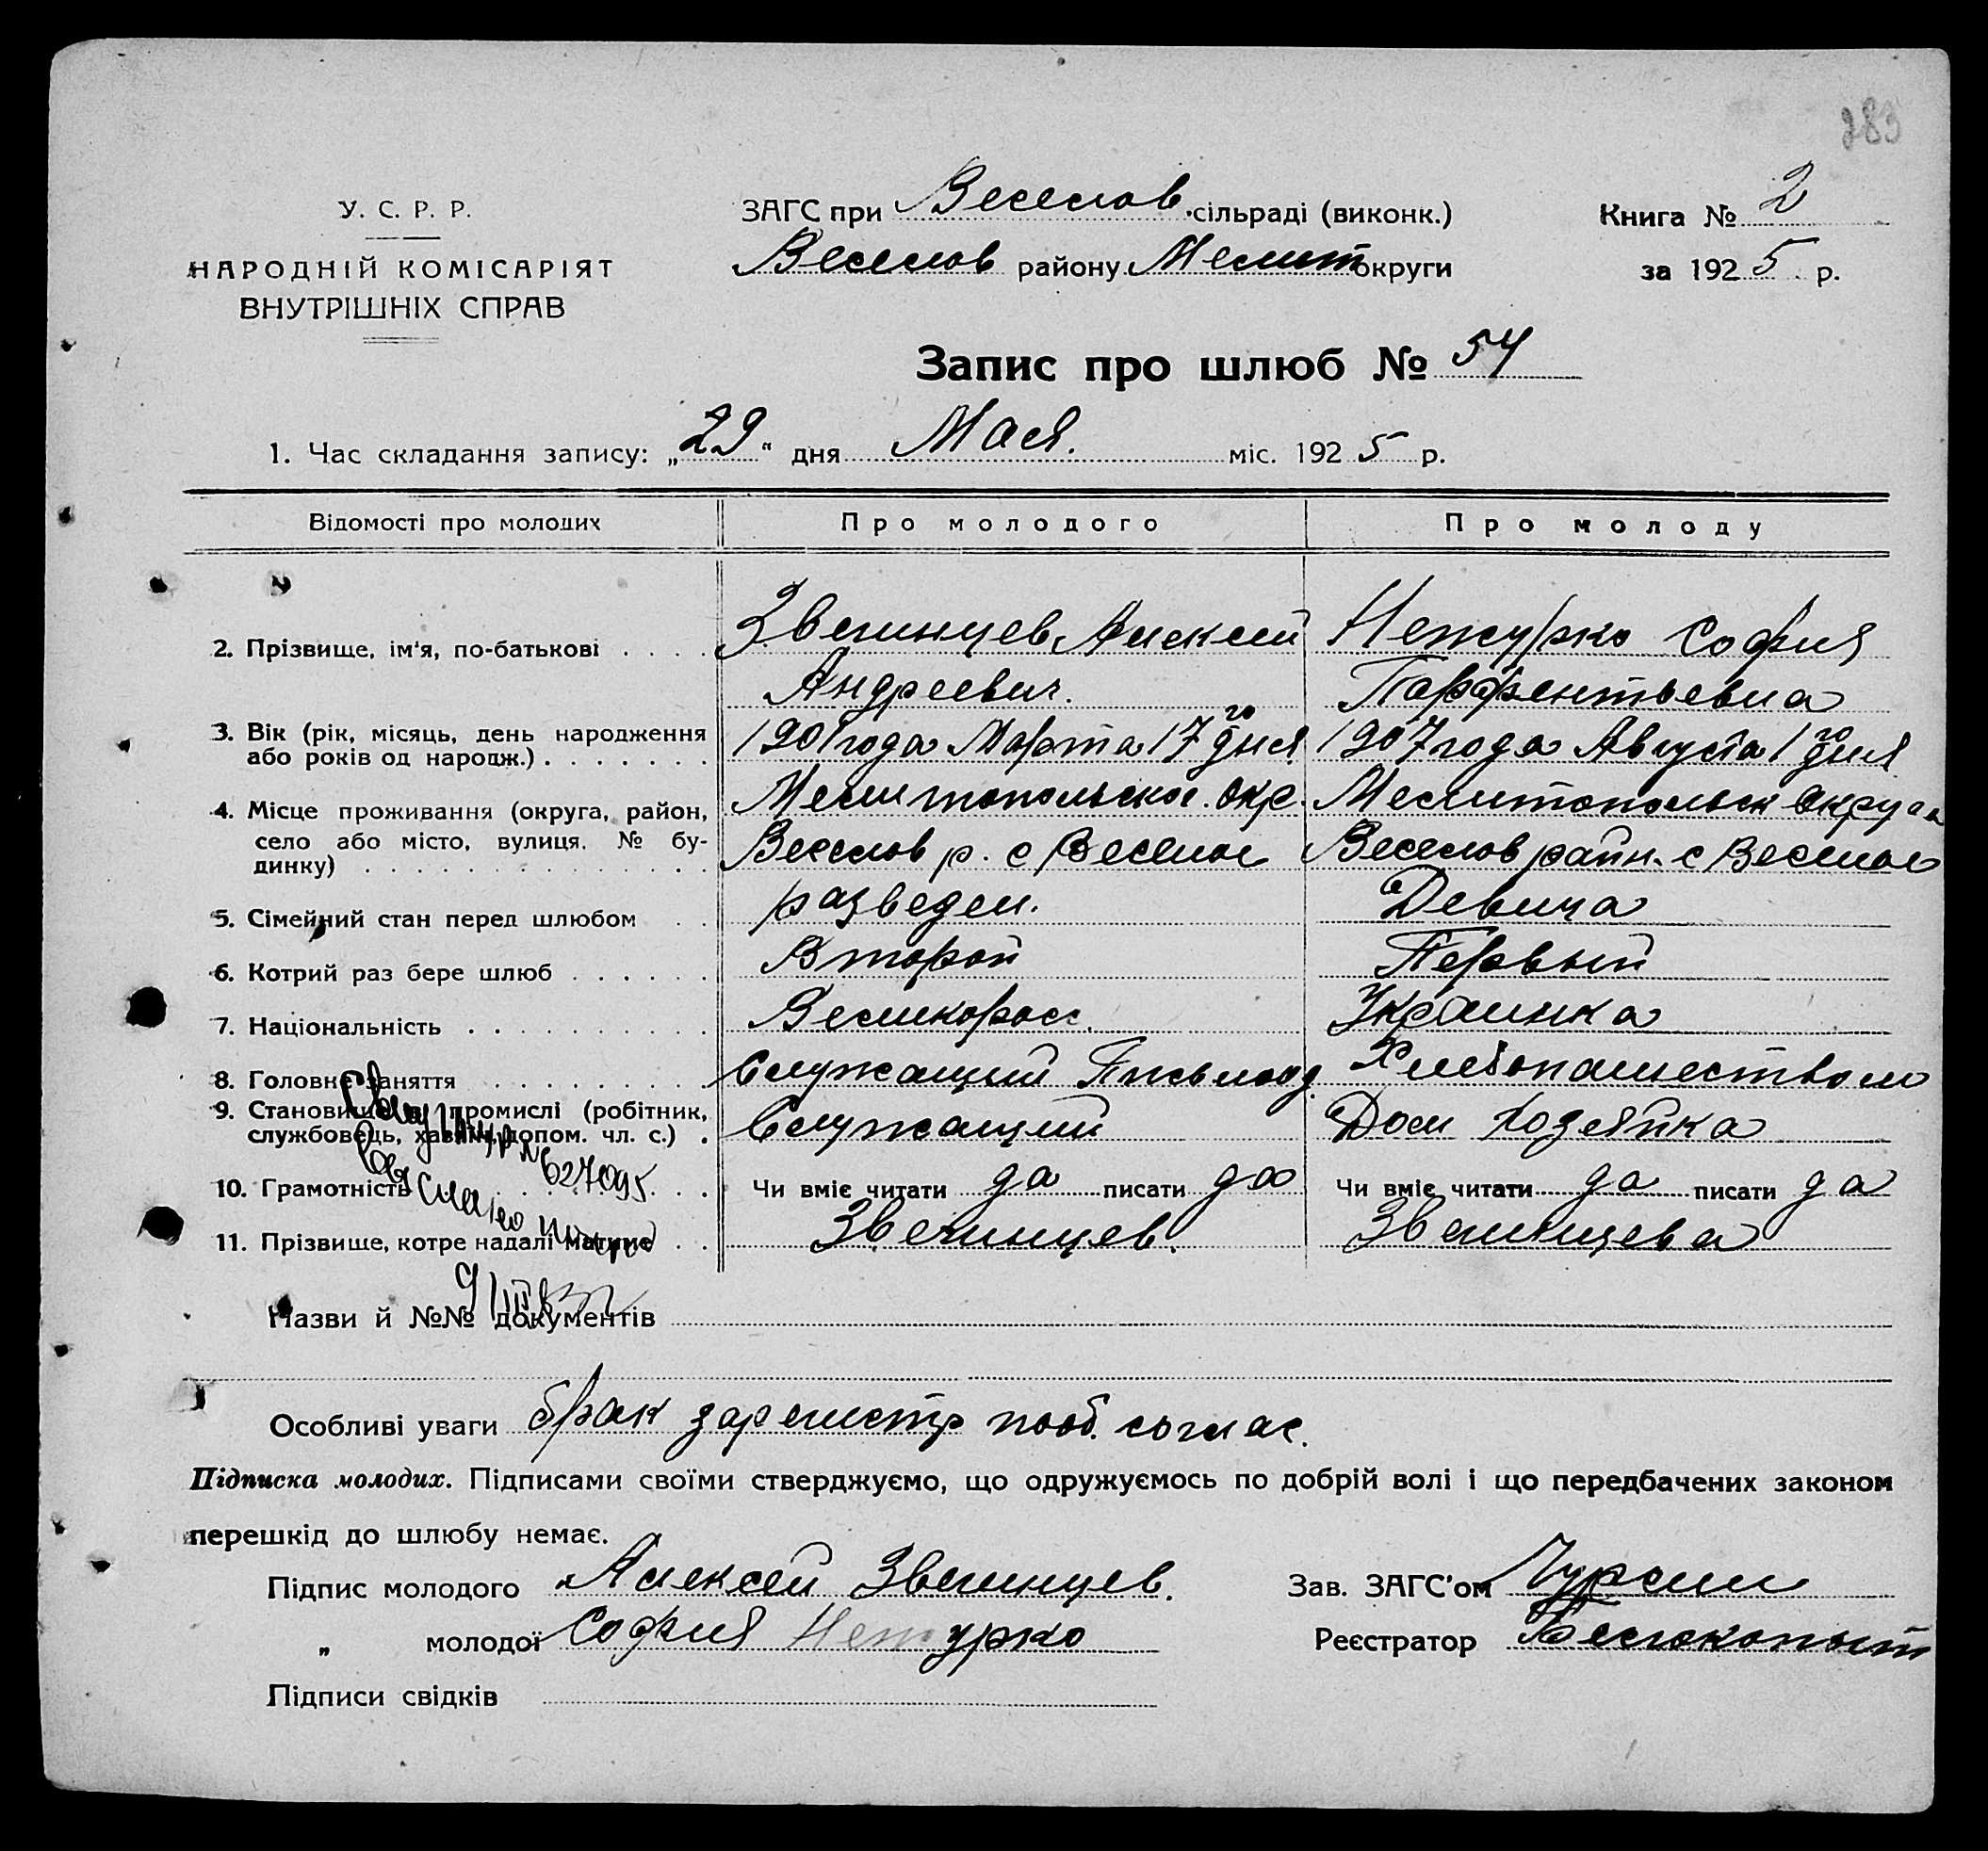 283
У. С. Р. Р.
НАРОДНІЙ КОМІСАРІЯТ
ВНУТРІШНІХ СПРАВ
ЗАГС при Веселов. сільраді (виконк.)
Веселов району Мелит округи
Книга № 2
за 1925 р.
Запис про шлюб № 54
1. Час складання запису: „29“ дня Мая. міс. 1925 р.
Відомості про молодих Про молодого Про молоду
2. Прізвище, ім'я, по-батькові . . . . Звегинцев Алексей Нежурко София
Андреевич. Парфентьевна
3. Вік (рік, місяць, день народження 1901 года Марта 17го дня 1907 года Августа 1го дня
або років од народж.) . . . . . . .
4. Місце проживання (округа, район, Мелитопольское. Окр. Мелитопольск Округа
село або місто, вулиця, № бу- Веселов р. с Веселое Веселов район. с Веселое
динку) . . . . . . . . . . . . . .
5. Сімейний стан перед шлюбом . . разведен. Девица
6. Котрий раз бере шлюб . . . . . . Второй Первый
7. Національність . . . . . . . . . . Великорос. Украинка
8. Головне заняття . . . . . . . . . Служащий Хлебопашеством
9. Становище в промислі (робітник,
службовець, хазяїн, допом. чл. с.) . Служащий Дом Хозяйка
627095
10. Грамотність . . . . . . Чи вміє читати да писати да Чи вміє читати да писати да
11. Прізвище, котре надалі матиме . . Звегинцев. Звегинцева
Назви й №№ документів
Особливі уваги брак зарегистр пооб. соглас.
Підписка молодих. Підписами своїми стверджуємо, що одружуємось по добрій волі і що передбачених законом
перешкід до шлюбу немає.
Підпис молодого Алексей Звегинцев. Зав. ЗАГС'ом
„ молодої София Нежурко Реєстратор Белокопыт
Підписи свідків